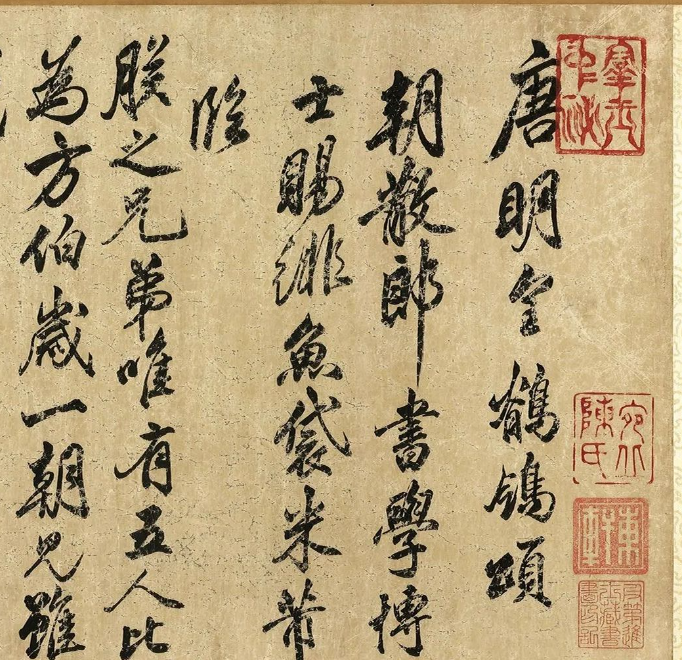 唐明皇鶺鴒頌
朝散郎書學博
士賜緋魚袋米芾
臨
朕之兄弟唯有五人比
為方伯歲一朝見雖
羣玉中秘
陳氏